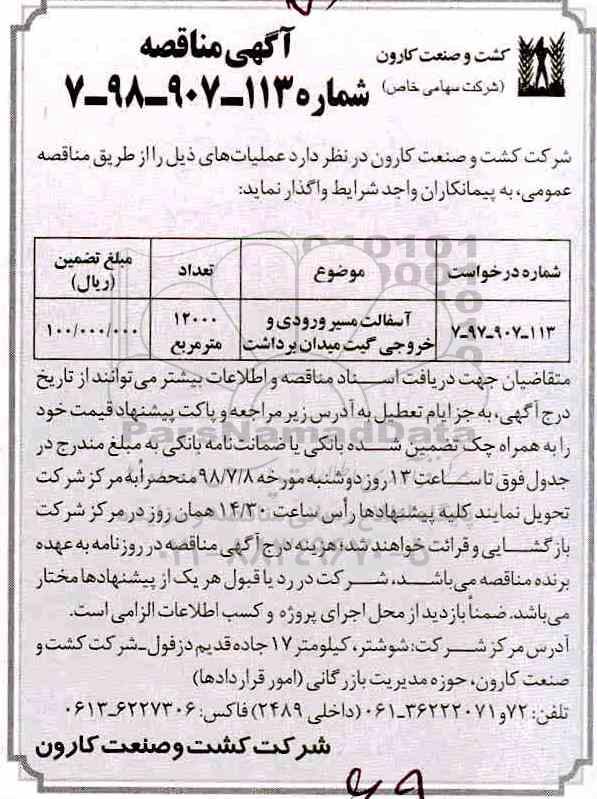 کشت و صنعت کارون
(شرکت سهامی خاص)
آگهی مناقصه
شماره ۱۱۳-۹۰۷-۹۸-۷
شرکت کشت و صنعت کارون در نظر دارد عملیات‌های ذیل را از طریق مناقصه
عمومی، به پیمانکاران واجد شرایط واگذار نماید:
شماره درخواست | موضوع | تعداد | مبلغ تضمین (ریال)
۱۱۳-۹۰۷-۹۷-۷ | آسفالت مسیر ورودی و خروجی گیت میدان برداشت | ۱۲۰۰۰ مترمربع | ۱۰۰/۰۰۰/۰۰۰
متقاضیان جهت دریافت اسناد مناقصه و اطلاعات بیشتر می‌توانند از تاریخ
درج آگهی، به جز ایام تعطیل به آدرس زیر مراجعه و پاکت پیشنهاد قیمت خود
را به همراه چک تضمین شده بانکی یا ضمانت‌نامه بانکی به مبلغ مندرج در
جدول فوق تا ساعت ۱۳ روز دوشنبه مورخه ۹۸/۷/۸ منحصراً به مرکز شرکت
تحویل نمایند کلیه پیشنهادها رأس ساعت ۱۴/۳۰ همان روز در مرکز شرکت
بازگشایی و قرائت خواهند شد؛ هزینه درج آگهی مناقصه در روزنامه به عهده
برنده مناقصه می‌باشد، شرکت در رد یا قبول هر یک از پیشنهادها مختار
می‌باشد. ضمناً بازدید از محل اجرای پروژه و کسب اطلاعات الزامی است.
آدرس مرکز شرکت: شوشتر، کیلومتر ۱۷ جاده قدیم دزفول-شرکت کشت و
صنعت کارون، حوزه مدیریت بازرگانی (امور قراردادها)
تلفن: ۷۲و۳۶۲۲۲۰۷۱-۰۶۱ (داخلی ۲۴۸۹) فاکس: ۶۲۲۷۳۰۶-۰۶۱۳
شرکت کشت و صنعت کارون
ParsNamadData